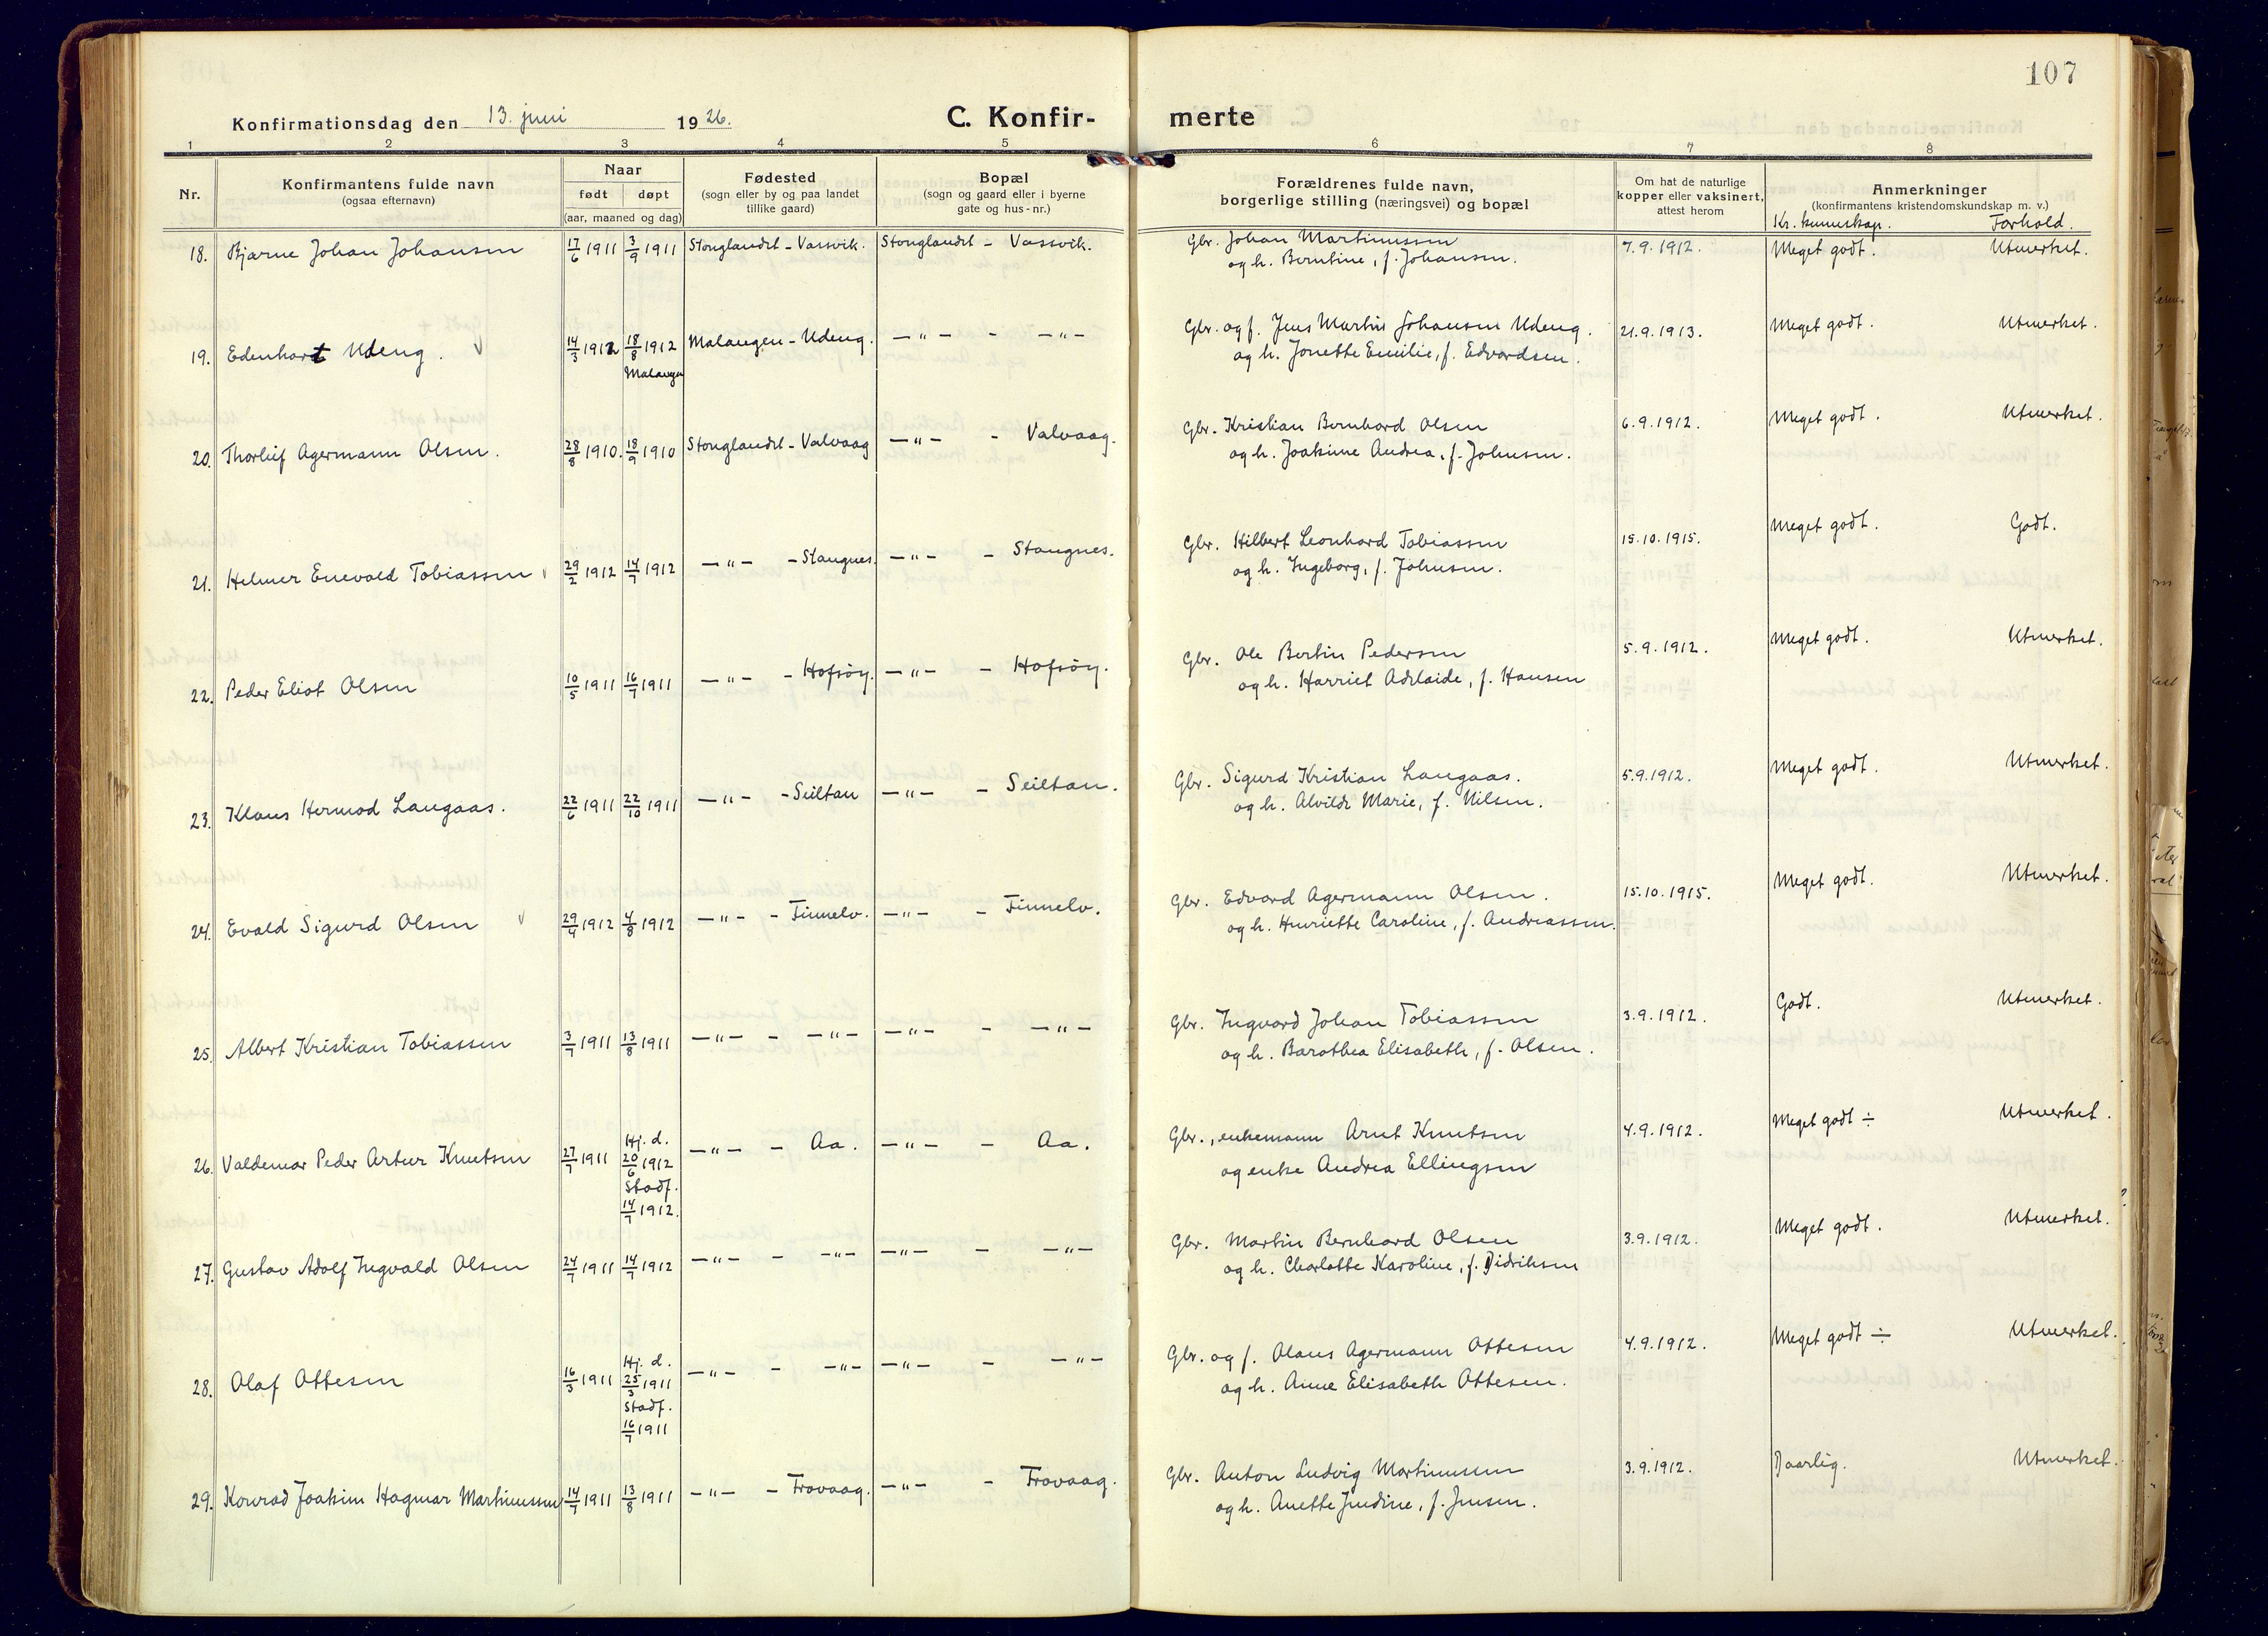 107
Konfirmationsdag den 13. juni 1926.
C. Konfir- merte
1 2 3 4 5 6 7 8
Nr.
Konfirmantens fulde navn
(ogsaa efternavn)
Naar
født døpt
(aar, maaned og dag)
Fødested
(sogn eller by og paa landet
tillike gaard)
Bopæl
(sogn og gaard eller i byerne
gate og hus-nr.)
Forældrenes fulde navn,
borgerlige stilling (næringsvei) og bopæl
Om hat de naturlige
kopper eller vaksinert,
attest herom
Anmerkninger
(konfirmantens kristendomskundskap m. v.)
Kr. kunnskap. Forhold.
18. Bjarne Johan Johansen 17/6 1911 3/9 1911 Stonglandet - Vassvik. Stonglandet - Vassvik. Gbr. Johan Martinussen 7.9.1912. Meget godt. Utmerket.
og h. Berntine, f. Johansen.
19. Edenhart Udeng. 14/3 1912 18/8 1912 Malangen - Udeng. -"- - -"- Gbr. og f. Jens Martin Johansen Udeng. 21.9.1913. Meget godt. Utmerket.
Malangen og h. Jonette Emilie, f. Edvardsen.
20. Thorleif Agermann Olsen. 28/8 1910. 18/9 1910 Stonglandet - Valvaag -"- - Valvaag. Gbr. Kristian Bernhard Olsen 6.9.1912. Meget godt. Utmerket.
og h. Joakime Andrea, f. Johnsen.
21. Helmer Enevold Tobiassen 29/2 1912 14/7 1912 -"- - Stangnes. -"- - Stangnes. Gbr. Hilbert Leonhard Tobiassen 15.10.1915. Meget godt. Godt.
og h. Ingeborg, f. Johnsen.
22. Peder Eliot Olsen 10/5 1911 16/7 1911 -"- - Hofsøy. -"- - Hofsøy. Gbr. Ole Bertin Pedersen 5.9.1912. Meget godt. Utmerket.
og h. Harriet Adelaide, f. Hansen
23. Klaus Hermod Langaas. 22/6 1911 22/10 1911 -"- - Seiltan -"- - Seiltan. Gbr. Sigurd Kristian Langaas. 5.9.1912. Meget godt. Utmerket.
og h. Alvilde Marie, f. Nilsen.
24. Evald Sigurd Olsen 29/4 1912 4/8 1912 -"- - Finnelv. -"- - Finnelv. Gbr. Edvard Agermann Olsen. 15.10.1915. Meget godt. Utmerket.
og h. Henriette Caroline, f. Andreassen.
25. Albert Kristian Tobiassen 3/7 1911 13/8 1911 -"- - -"- -"- - -"- Gbr. Ingvard Johan Tobiassen 3.9.1912. Godt. Utmerket.
og h. Barothea Elisabeth, f. Olsen.
26. Valdemar Peder Artur Knutsen 27/7 1911 Hj. d. 20/6 1912 Stadf. 14/7 1912. -"- - Aa. -"- - Aa. Gbr., enkemann Arnt Knutsen 4.9.1912. Meget godt ÷ Utmerket.
og enke Andrea Ellingsen
27. Gustav Adolf Ingvald Olsen 24/7 1911 14/7 1912 -"- - -"- -"- - -"- Gbr. Martin Bernhard Olsen 3.9.1912. Meget godt. Utmerket.
og h. Charlotte Karoline, f. Didriksen
28. Olaf Ottesen 16/3 1911 Hj. d. 25/3 1911 Stadf. 16/7 1911 -"- - -"- -"- - -"- Gbr. og f. Olaus Agermann Ottesen 4.9.1912. Meget godt ÷ Utmerket.
og h. Anne Elisabeth Ottesen.
29. Konrad Joakim Hagmar Martinussen 14/7 1911 13/8 1911 -"- - Frovaag. -"- - Frovaag. Gbr. Anton Ludvig Martinussen 3.9.1912. Daarlig. Utmerket.
og h. Anette Jendine, f. Jensen.